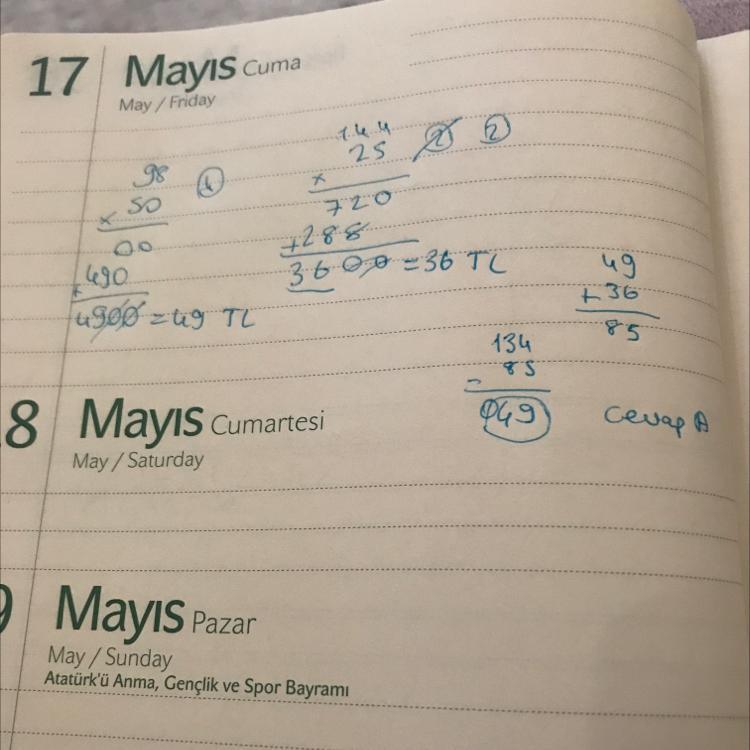 17 Mayıs Cuma
May / Friday
98 1
x 50
00
+ 490
4900 = 49 TL
144
25 2 2
x
720
+ 288
3600 = 36 TL
49
+ 36
85
134
- 85
049 Cevap A
8 Mayıs Cumartesi
May / Saturday
9 Mayıs Pazar
May / Sunday
Atatürk'ü Anma, Gençlik ve Spor Bayramı